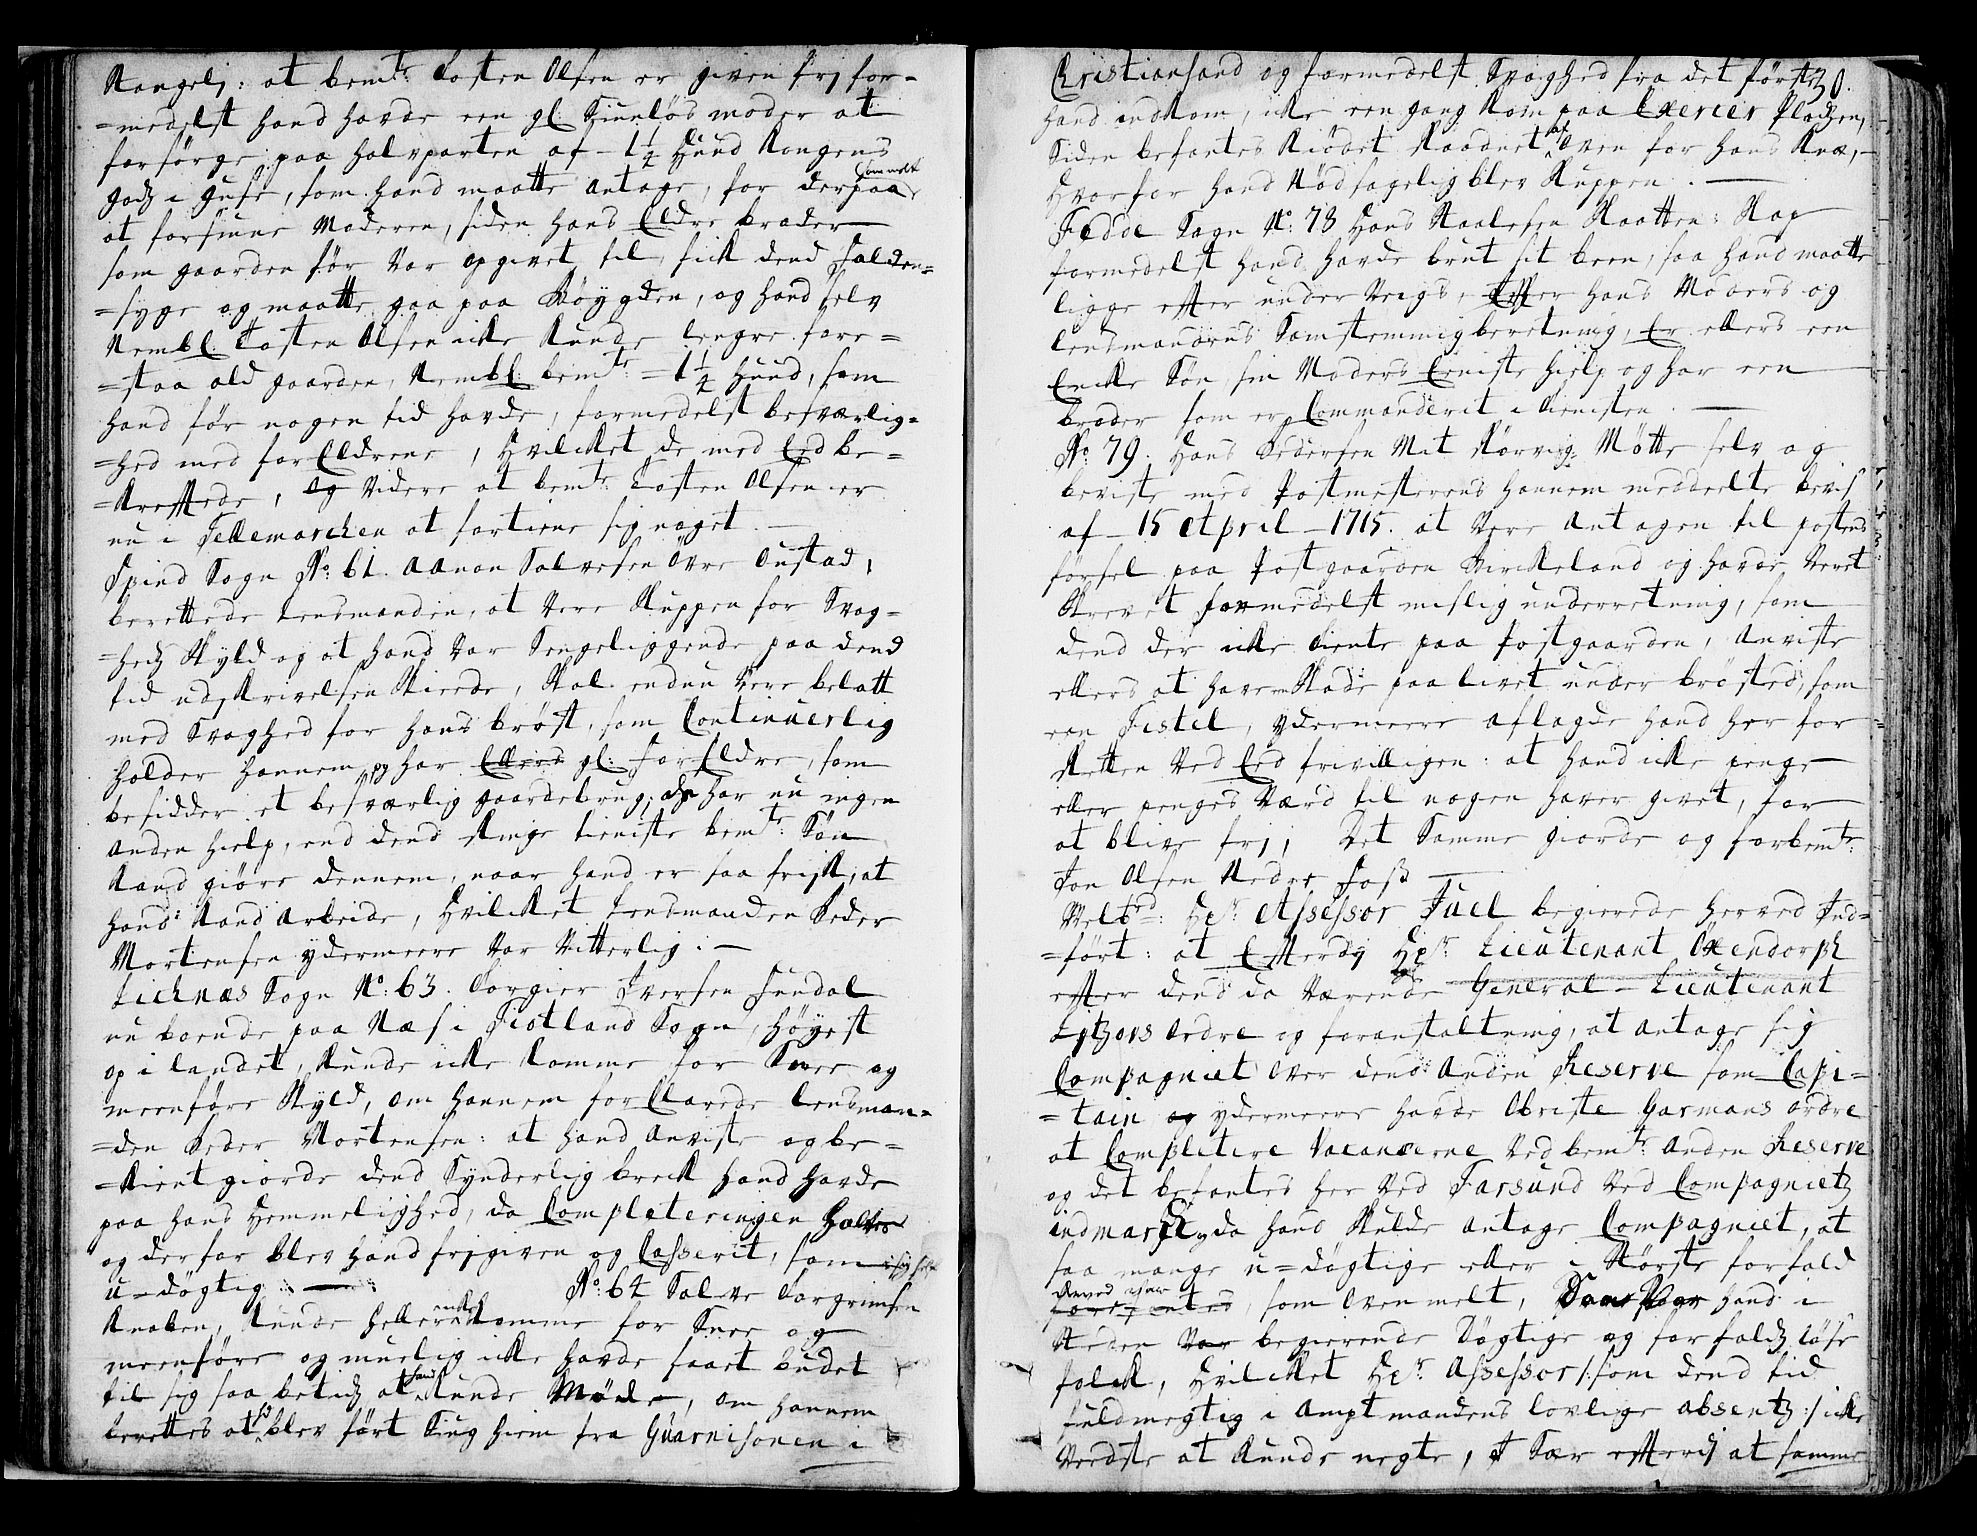 Stangelj: at bemte Tosten Olsen er given frj for-
=medelst hand havde een gl. Siunlös moder at
forsörge paa halvparten af - 1½ Hud Kongens
godz i Huse, som hand maatte antage, for derpaa som melt
at forsiune Moderen, siden hans Eldre broder
som gaarden för var opgivet til, fik dend falden-
=syge og maatte gaa paa Böygden, og hand selv
Nembl. Tosten Olsen icke kunde lengre fore=
=staa ald gaarden, Nembl: bemte = 1½ Hud, som
hand för nogen tid havde, formedelst besværlig=
=hed med forEldrene, Hvilcket de med Eed be=
=kreftede, og videre at bemte Tosten Olsen er
nu i Tellemarchen at fortiene sig noget. —
Spind Sogn No: 61. Aanon Salvesen Övre Ousta&d,
berettede Lensmanden, at vere Sluppen for Svag=
=hedz Skyld og at hand var Sengeliggende paa dend
tid udskrivelsen skeede, Skal endnu vere beladt
med Svaghed for hans bröst, som Continuerlig
holder hannem, og har Ellers gl: forEldre, som
besidder et besværlig gaardebrug, de har nu ingen
anden hielp, end dend ringe tieniste bemte: Sön
kand giöre dennem, naar hand er saa frisk, at
hand kand arbeide, Hvilcket Lensmanden Peder
Mortensen ydermeere var vitterlig: —
Lichnæs Sogn No: 63. Torgier Iversen Sundal
nu boende paa Næs i Fiotland Sogn, höyest
op i landet, kunde icke komme for Snee og
meenföre Skyld, om hannem forClarede Lensman=
=den Peder Mortensen: at hand anviste og be=
=kient giorde dend Synderlig breck hand havde
paa hans Hemmelighed, da Completeringen holtes
og derfor blev hand frjgiven og Casserit, som
u=dögtig: — No: 64 Salve Torgrimsen
Knaben, kunde heller icke komme for Snee og
meenföre og muelig icke havde faaet budet
til sig saa betidz at hand kunde Möde, om hannem
berettes at hand blev fört Siug hiem fra Guarnisonen i
Christiansand og formedelst Svaghed fra det förste 30.
hand indkom, icke een gang kom paa Exercer Pladzen,
Siden befantes Kiödet Raadnet af Oven for hans Knæ,
Hvorfor hand Nödsagelig blev Sluppen. —
Fedde Sogn No: 73 Hans Naalesen Slaatten: Slap
formedelst hand havde brut sit been, saa hand maatte
ligge efter under Veigs, Efter hans Moders og
lensmandens Samstemmig beretning, Er ellers een
Encke Sön, sin Moders Eeniste hielp og har een
broder som er Commanderit i tienisten. —
No: 79. Hans Pedersen Mit Körvig: Mötte selv og
beviste med Postmesterens hannem meddeelte bevis
af - 15 April - 1715. at vere antagen til postens
försel paa Postgaarden Birckeland og havde veret
Skrevet formedelst mislig underretning, som
dend der icke tiente paa Postgaarden, anviste
ellers at have Skade paa livet under bröstet, som
een Fistel, ydermeere aflagde hand her for
Retten ved Eed frivilligen: at hand icke penge
eller penges Værd til nogen haver givet, for
at blive frj; Det Samme giorde og forbemte
Jon Olsen Nedre Fosz —
Velbrd: Hr: Assessor Juel begierede herved Ind=
=fört: at Efterdj Hr: Lieutenant Oxendorph
efter dend da værende General-Lieutenant
Lytzovs Ordre og foranstaltning, at antage sig
Compagniet over dend anden Reserve som Capi=
=tain og ydermeere havde Obriste Garmans ordre
at Completere Vacancerne ved bemte anden Reserve
og det befantes her ved Farsund ved Compagnietz
indmarsch, da hand Skulde antage Compagniet, at
saa mange u=dögtige eller i Störste forfald
som Ovenmelt, hand i
Steden var begierende Dögtige og forfaldz löse
folck, Hvilcket Hr: Assessor /:som dend tid
fuldmegtig i amptmandens lovlige absentz:/ icke
Veedste at kunde negte, i Sær efterdj at samme